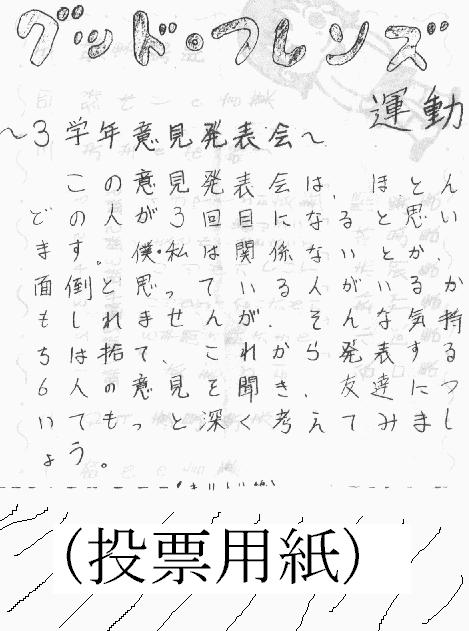 グッド・フレンズ
運動
～3学年意見発表会～
この意見発表会は、ほとん
どの人が3回目になると思い
ます。僕・私は関係ないとか、
面倒と思っている人がいるか
もしれませんが、そんな気持
ちは捨て、これから発表する
6人の意見を聞き、友達につ
いてもっと深く考えてみまし
ょう。
(投票用紙)